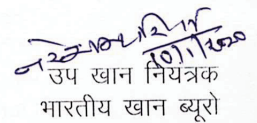 10/1/2020
उप खान नियंत्रक
भारतीय खान ब्यूरो